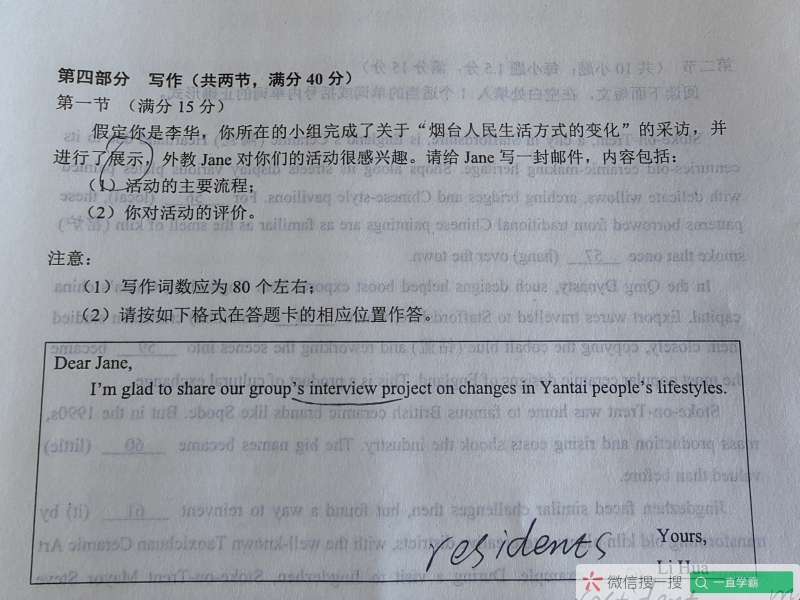 第四部分 写作（共两节，满分 40 分）
第一节 （满分 15 分）
假定你是李华，你所在的小组完成了关于“烟台人民生活方式的变化”的采访，并
进行了展示，外教 Jane 对你们的活动很感兴趣。请给 Jane 写一封邮件，内容包括：
（1）活动的主要流程；
（2）你对活动的评价。
注意：
（1）写作词数应为 80 个左右；
（2）请按如下格式在答题卡的相应位置作答。
Dear Jane,
I'm glad to share our group's interview project on changes in Yantai people's lifestyles.
residents
Yours,
Li Hua
微信搜一搜 一直学霸